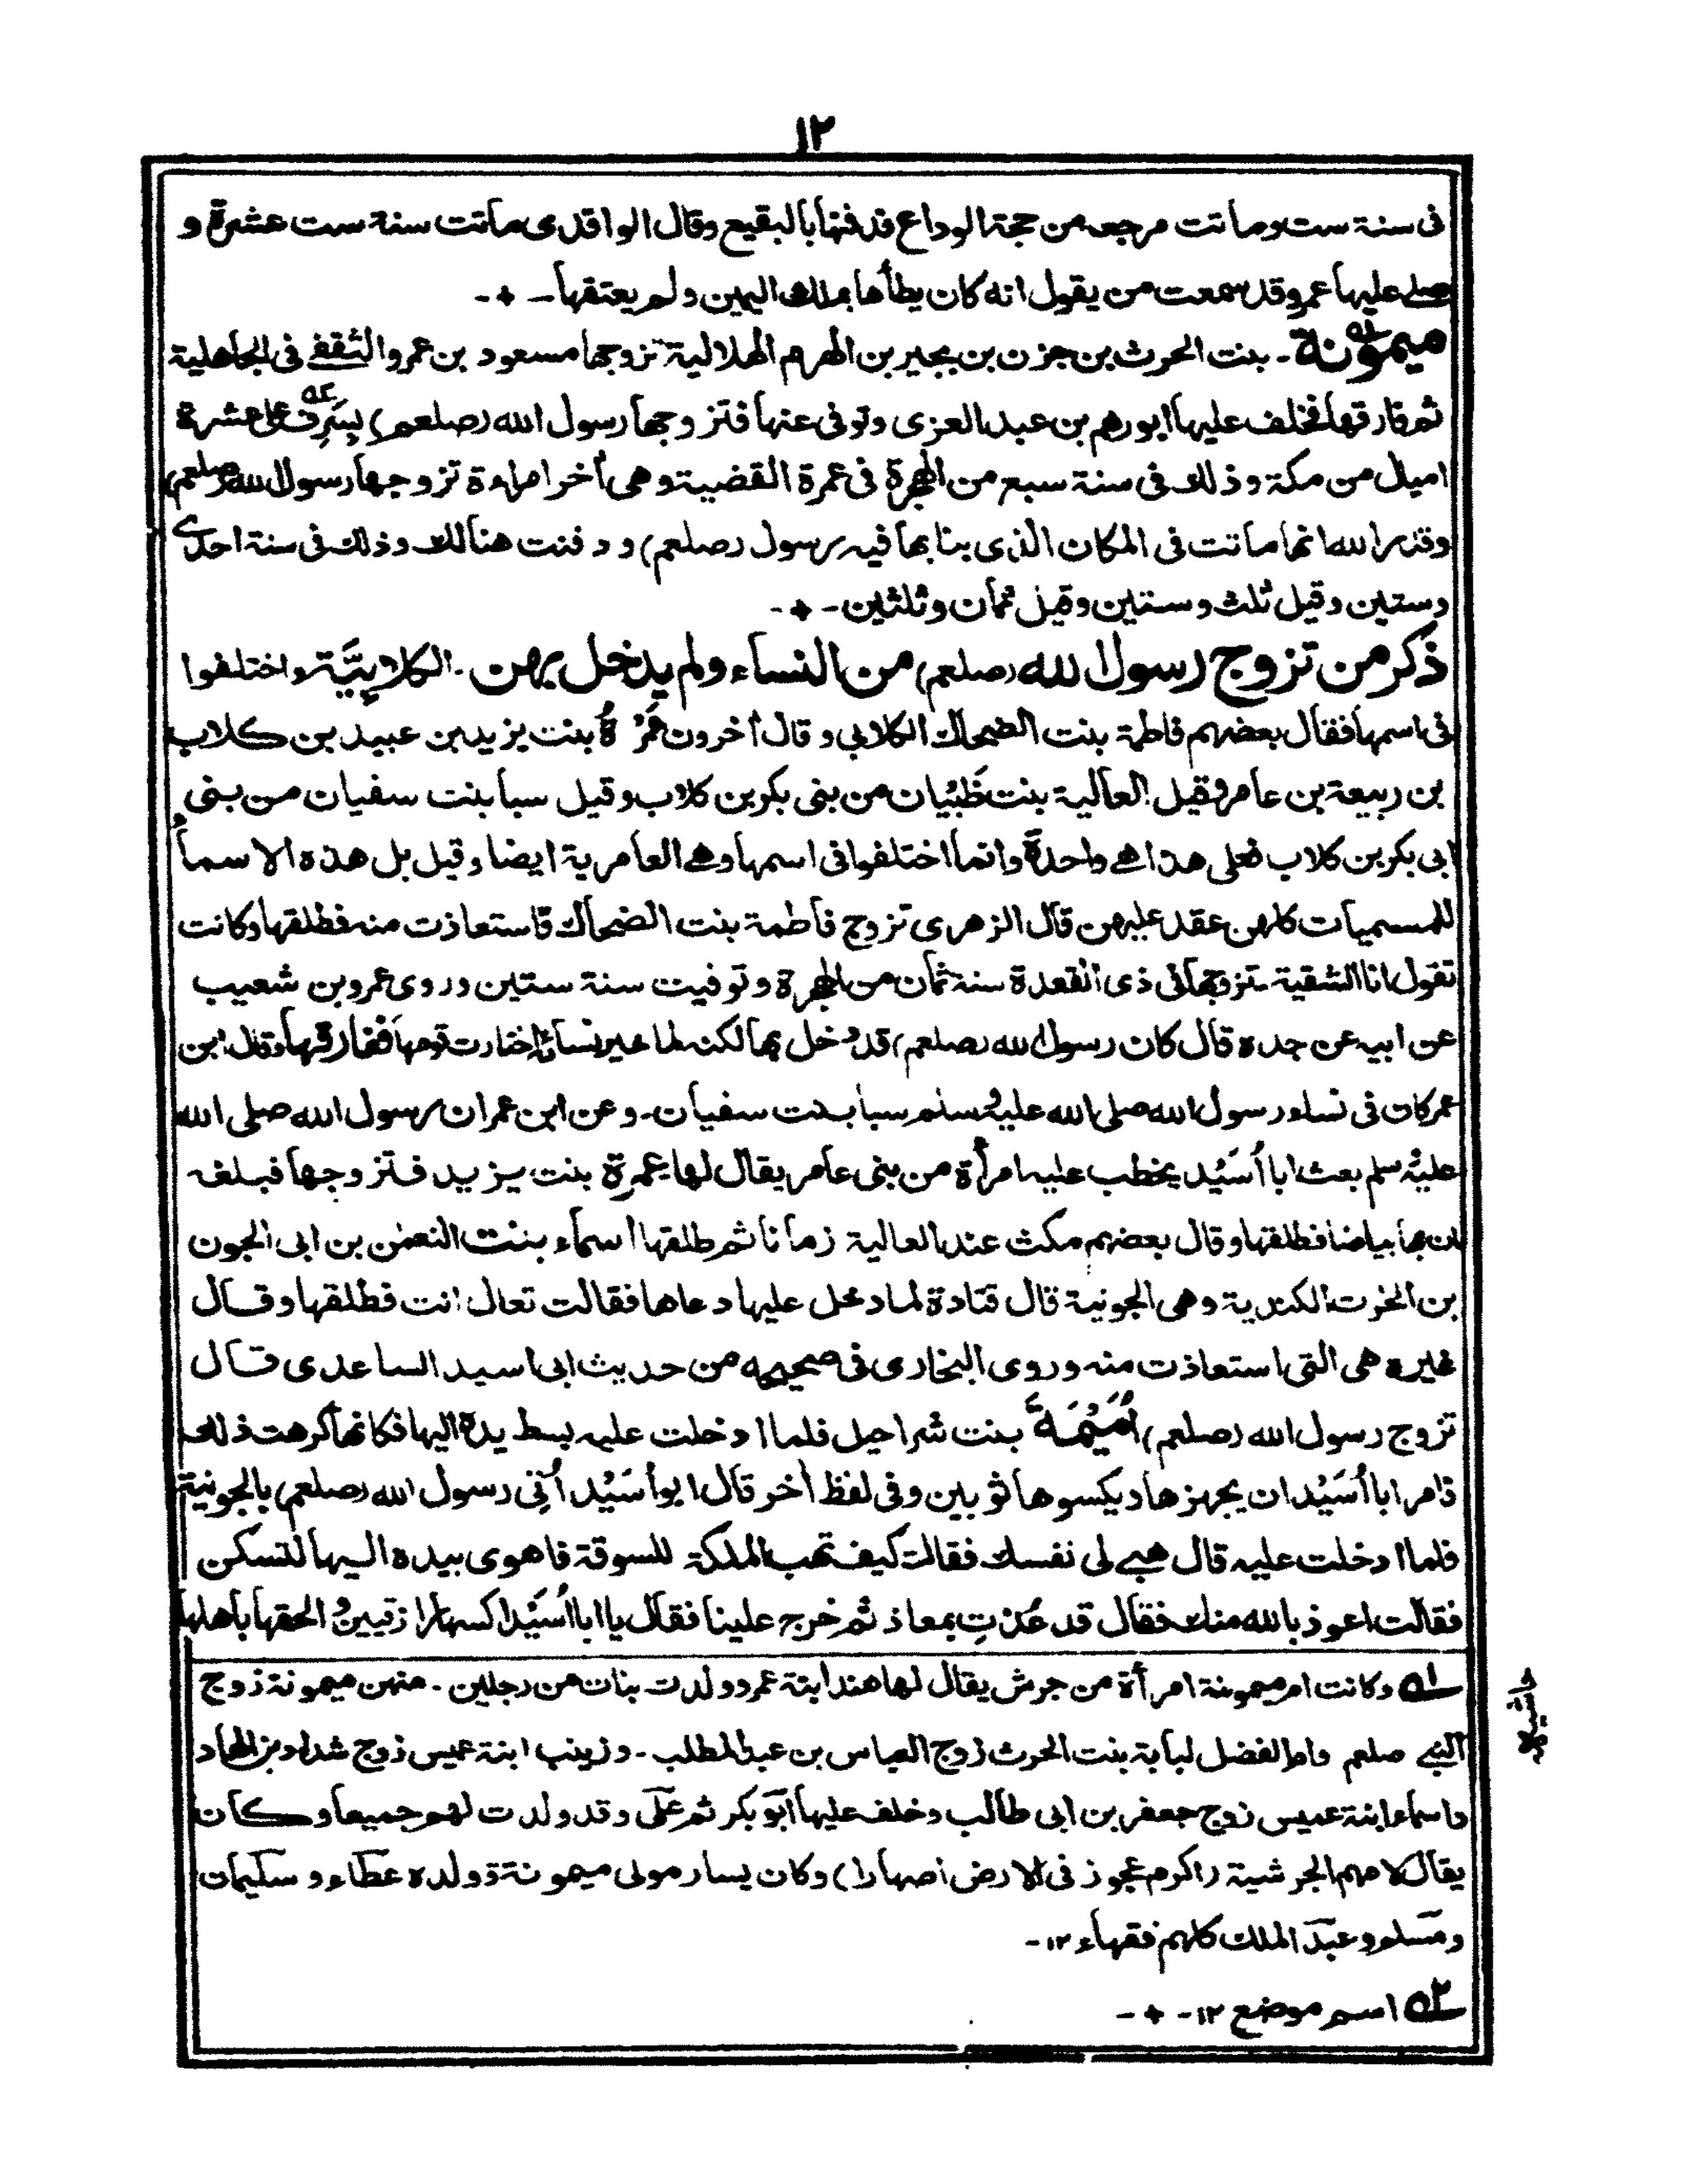 ١٢
فى سنة ست وماتت مرجعه من حجة الوداع فدفنها بالبقيع وقال الواقدى ماتت سنة ست عشرة و
صلے عليها عمر وقد سمعت من يقول انه كان يطأها بملك اليمين ولم يعتقها ـ ٭ ـ
ميمونة ـ بنت الحرث بن حزن بن بجير بن الهرم الهلالية تزوجها مسعود بن عمرو الثقفے فى الجاهلية
ثم فارقها فخلف عليها ابورهم بن عبد العزى وتوفى عنها فتزوجها رسول الله (صلعم) بِسَرِف على عشرة
اميال من مكة وذلك فى سنة سبع من الهجرة فى عمرة القضية وهى أخر امراءة تزوجها رسول الله (صلعم)
وقدر الله انها ماتت فى المكان الذى بنا بها فيه رسول (صلعم) ودفنت هنالك وذلك فى سنة احدے
وستين وقيل ثلث وستين وقيل ثمان وثلثين ـ ٭ ـ
ذكر من تزوج رسول الله (صلعم) من النساء ولم يدخل بهن ـ الكلابِيَّة واختلفوا
فى اسمها فقال بعضهم فاطمة بنت الضحاك الكلابي وقال أخرون عَمْرَةُ بنت يزيد بن عبيد بن كلاب
بن ربيعة بن عامر وقيل العالية بنت ظَبْيَان من بنى بكر بن كلاب وقيل سبا بنت سفيان من بنى
ابى بكر بن كلاب فعلى هذا هے واحدة وانما اختلفوا فى اسمها وهے العامرية ايضا وقيل بل هذه الاسماء
للمسميات كلهن عقد عليهن قال الزهرى تزوج فاطمة بنت الضحاك فاستعاذت منه فطلقها وكانت
تقول انا الشقية تزوجها فى ذى القعدة سنة ثمان من الهجرة وتوفيت سنة ستين وروى عمرو بن شعيب
عن ابيه عن جده قال كان رسول الله (صلعم) قد دخل بها لكنه لما خير نسائه اختارت قومها ففارقها وقال ابن
عمر كان فى نساء رسول الله صلى الله عليه وسلم سبا بنت سفيان ـ وعن ابن عمر ان رسول الله صلى الله
عليه وسلم بعث ابا اُسَيْد يخطب عليه امرأة من بنى عامر يقال لها عمرة بنت يزيد فتزوجها فبلغه
ان بها بياضا فطلقها وقال بعضهم مكث عند العالية زمانا ثم طلقها اسماء بنت النعمٰن بن ابى الجون
بن الحرث الكندية وهى الجونية قال قتادة لما دخل عليها دعاها فقالت تعال انت فطلقها وقال
غيره هى التى استعاذت منه وروى البخارى فى صحيحه من حديث ابى اسيد الساعدى قال
تزوج رسول الله (صلعم) اُمَيْمَةَ بنت شراحيل فلما ادخلت عليه بسط يده اليها فكانها كرهت ذلك
فامر ابا اُسَيْد ان يجهزها ويكسوها ثوبين وفى لفظ أخر قال ابو أُسَيْد اُتِى رسول الله (صلعم) بالجونية
فلما ادخلت عليه قال هبے لى نفسك فقالت كيف تهب الملكة للسوقة فاهوى بيده اليها لتسكن
فقالت اعوذ بالله منك فقال قد عُذْتِ بمعاذ ثم خرج علينا فقال يا ابا اُسَيْد اكسها رازقيين والحقها باهلها
حاشيه
١ه وكانت ام ميمونة امرأة من جرش يقال لها هند ابنة عمرو ولدت بنات من رجلين ـ منهن ميمونة زوج
النبے صلعم وام الفضل لبابة بنت الحرث زوج العباس بن عبد المطلب ـ وزينب ابنة عميس زوج شداد بن الهاد
واسماء ابنة عميس زوج جعفر بن ابى طالب وخلف عليها ابو بكر ثم على وقد ولدت لهم جميعا وكان
يقال لامهم الجرشية (اكرم عجوز فى الارض اصهارا) وكان يسار مولى ميمونة وولده عطاء و سليمان
ومسلم وعبد الملك كلهم فقهاء ١٢ ـ
٢ه اسم موضع ١٢ ـ ٭ ـ